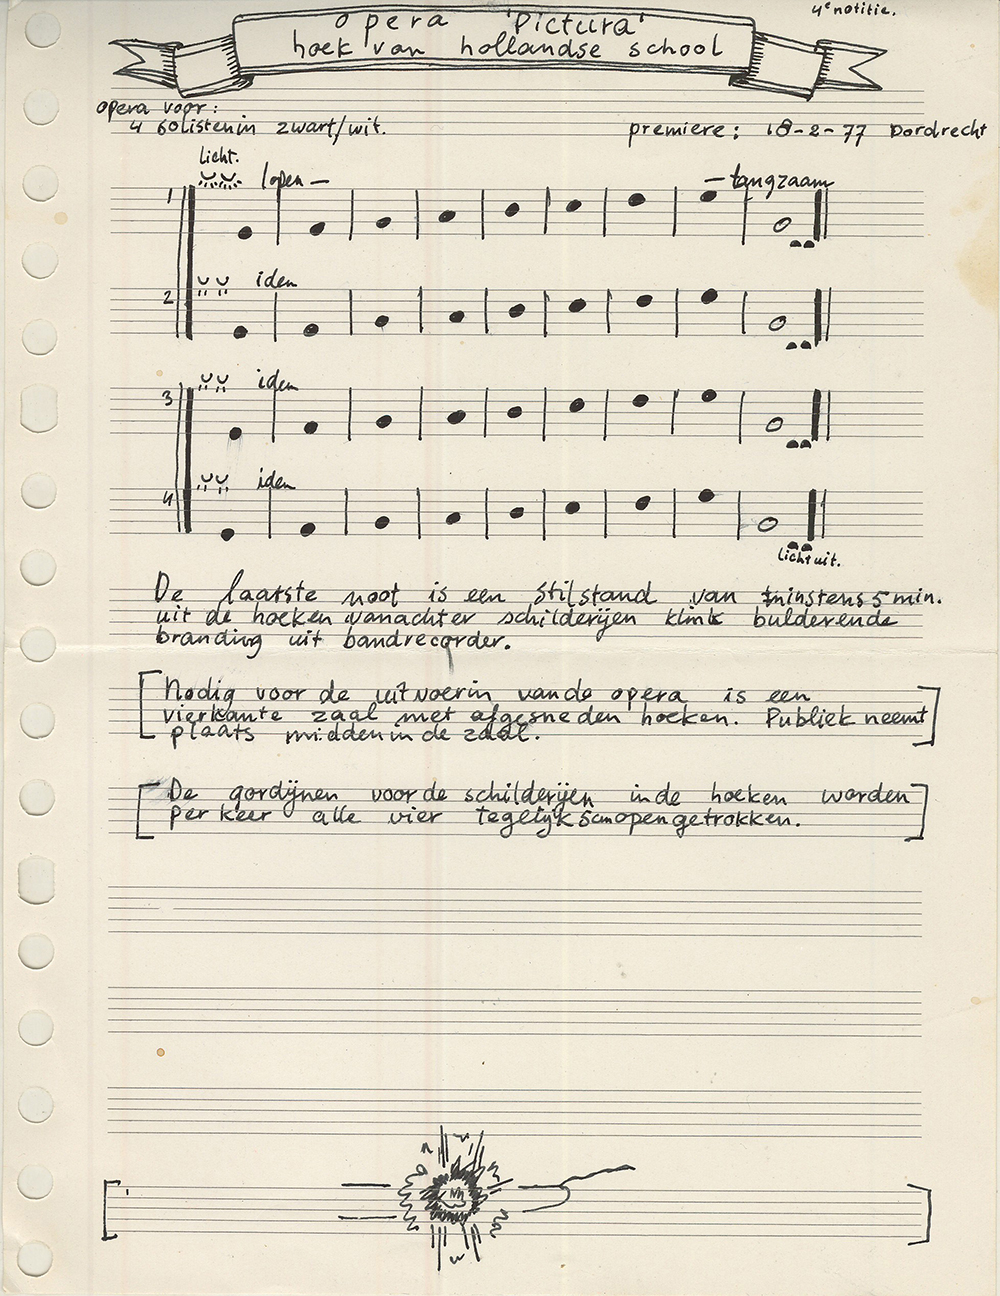 4e notitie.
opera 'Pictura'
hoek van hollandse school
opera voor:
4 solisten in zwart/wit.
premiere: 18-2-77 Dordrecht
licht.
1 lopen — — langzaam
2 idem
3 idem
4 idem
licht uit.
De laatste noot is een stilstand van minstens 5 min.
uit de hoeken vanachter schilderijen klinkt bulderende
branding uit bandrecorder.
[Nodig voor de uitvoerin van de opera is een
vierkante zaal met afgesneden hoeken. Publiek neemt
plaats midden in de zaal.]
[De gordijnen voor de schilderijen in de hoeken worden
per keer alle vier tegelijk opengetrokken.]